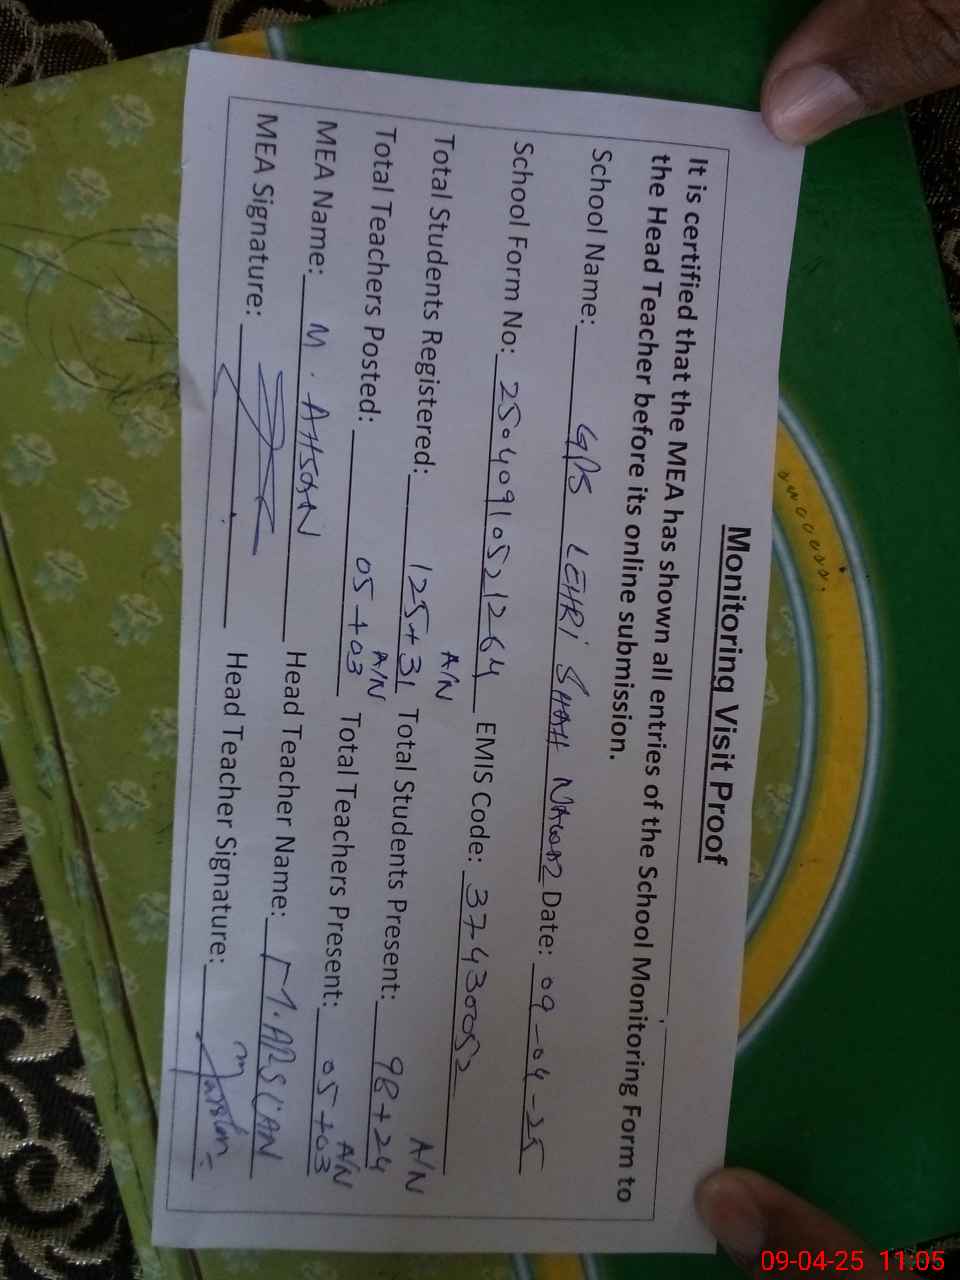 Monitoring Visit Proof
It is certified that the MEA has shown all entries of the School Monitoring Form to
the Head Teacher before its online submission.
School Name: GPS LEHRi SHAH NAWAZ Date: 09-04-25
School Form No: 25040910521264 EMIS Code: 37430052
A/N A/N
Total Students Registered: 125+31 Total Students Present: 98+24
A/N A/N
Total Teachers Posted: 05+03 Total Teachers Present: 05+03
MEA Name: M. AHSAN Head Teacher Name: M. ARSLAN
MEA Signature: Head Teacher Signature: M Arslan
09-04-25 11:05